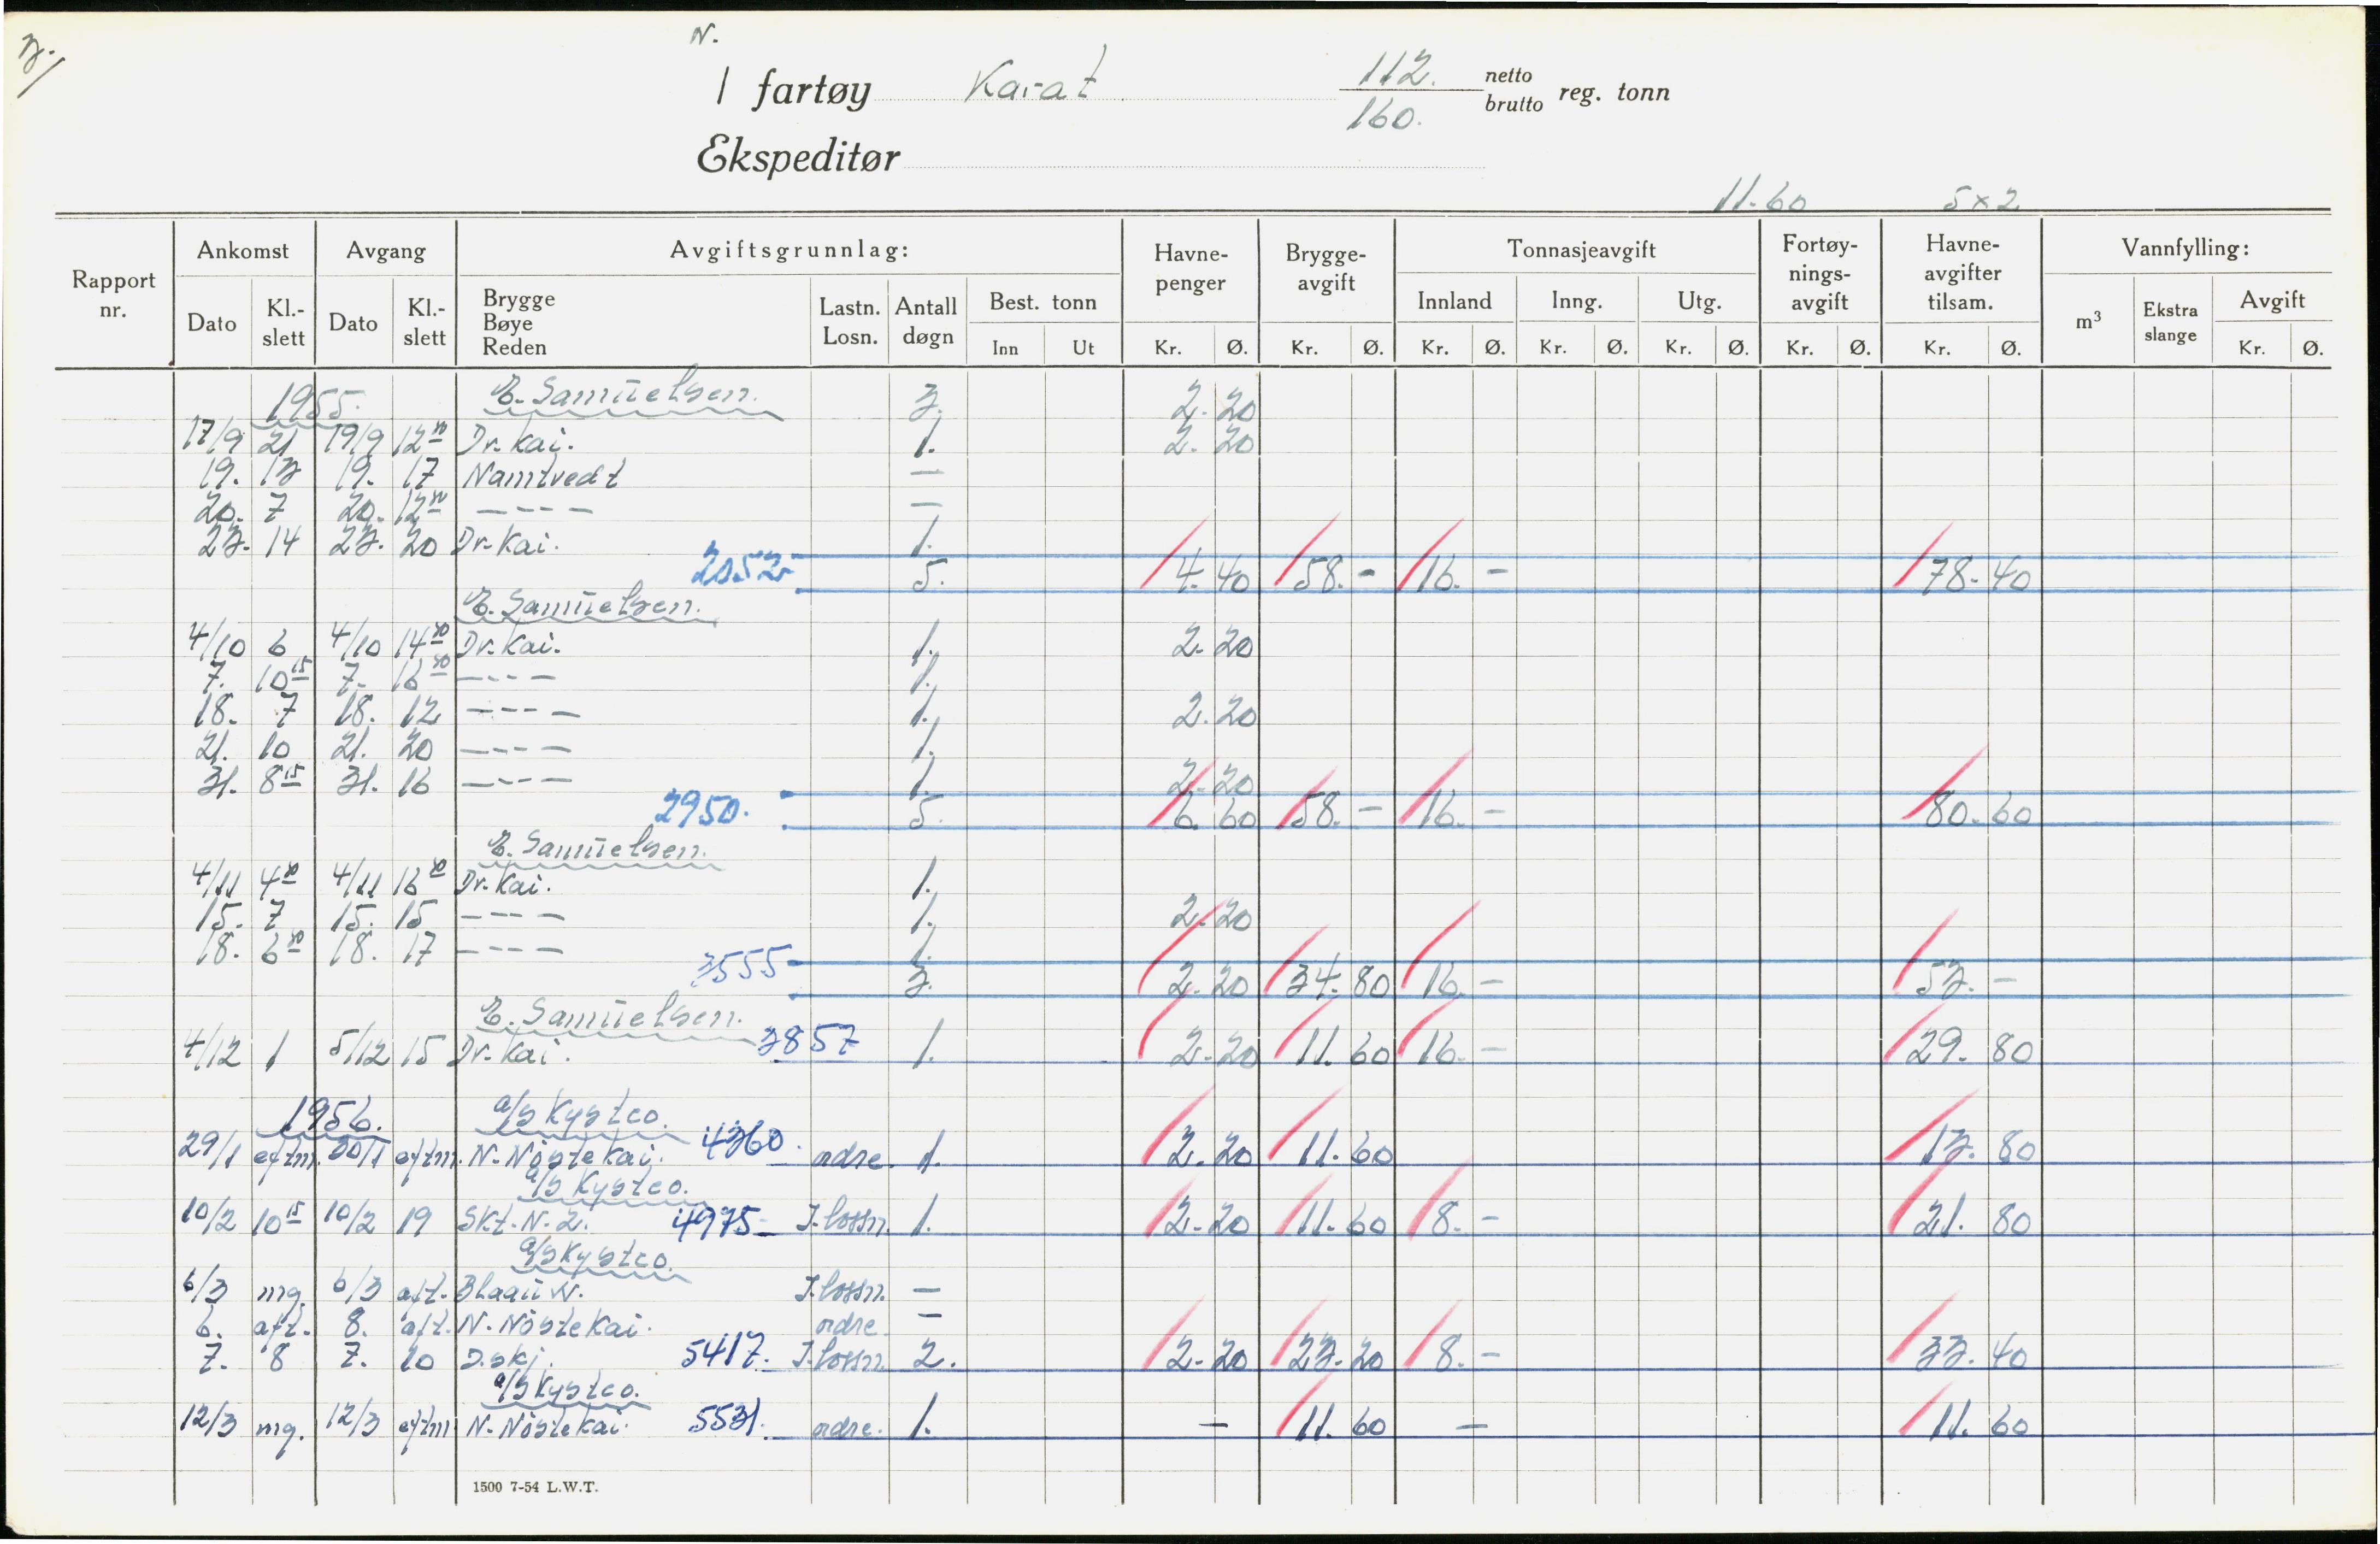 3.
N.
I fartøy Karat 112. netto
160. brutto reg. tonn
Ekspeditør
11.60 5 x 2
Rapport nr. Ankomst Avgang Avgiftsgrunnlag: Havne-penger Brygge-avgift Tonnasjeavgift Fortøy-nings-avgift Havne-avgifter tilsam. Vannfylling:
Dato Kl.-slett Dato Kl.-slett Brygge Bøye Reden Lastn. Losn. Antall døgn Best. tonn Innland Inng. Utg. m³ Ekstra slange Avgift
Inn Ut Kr. Ø. Kr. Ø. Kr. Ø. Kr. Ø. Kr. Ø. Kr. Ø. Kr. Ø. Kr. Ø.
1955. E. Samuelsen. 3. 2. 20
17/9 21 19/9 12 30 Dr. Kai. 1. 2. 20
19. 13 19. 17 Namtvedt —
20. 7 20. 12 30 ---- —
23. 14 23. 20 Dr. Kai. 1.
2052 5. 4. 40 58. - 16. - 78. 40
E. Samuelsen.
4/10 6 4/10 14 30 Dr. Kai. 1. 2. 20
7. 10 15 7. 16 30 ---- 1.
18. 7 18. 12 ---- 1. 2. 20
21. 10 21. 20 ---- 1.
31. 8 15 31. 16 ---- 1. 2. 20
2950. 5. 6. 60 58. - 16. - 80. 60
E. Samuelsen.
4/11 4 30 4/11 16 30 Dr. Kai. 1.
15. 7 15. 15 ---- 1. 2. 20
18. 6 30 18. 17 ---- 1.
3555 3. 2. 20 34. 80 16. - 53. -
E. Samuelsen.
4/12 1 5/12 15 Dr. Kai. 3857 1. 2. 20 11. 60 16. - 29. 80
1956. a/s Kystco.
29/1 eftm. 30/1 eftm. N. Nöstekai. 4360. ordre. 1. 2. 20 11. 60 13. 80
a/s Kystco.
10/2 10 15 10/2 19 Skt. N. 2. 4975 I. lossn. 1. 2. 20 11. 60 8. - 21. 80
a/s Kystco.
6/3 mg. 6/3 aft. Blaauw. I. lossn. —
6. aft. 8. aft. N. Nöstekai. ordre. —
7. 8 7. 10 D.skj. 5417. I. lossn. 2. 2. 20 23. 20 8. - 33. 40
a/s Kystco.
12/3 mg. 12/3 eftm N. Nöstekai. 5531. ordre. 1. - 11. 60 - 11. 60
1500 7-54 L.W.T.